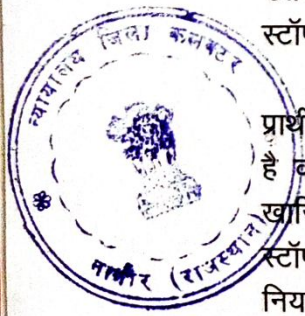 स्टॉप
प्रार्थी
है
खारि
स्टॉप
निय
न्यायालय जिला कलक्टर
नागौर (राजस्थान)